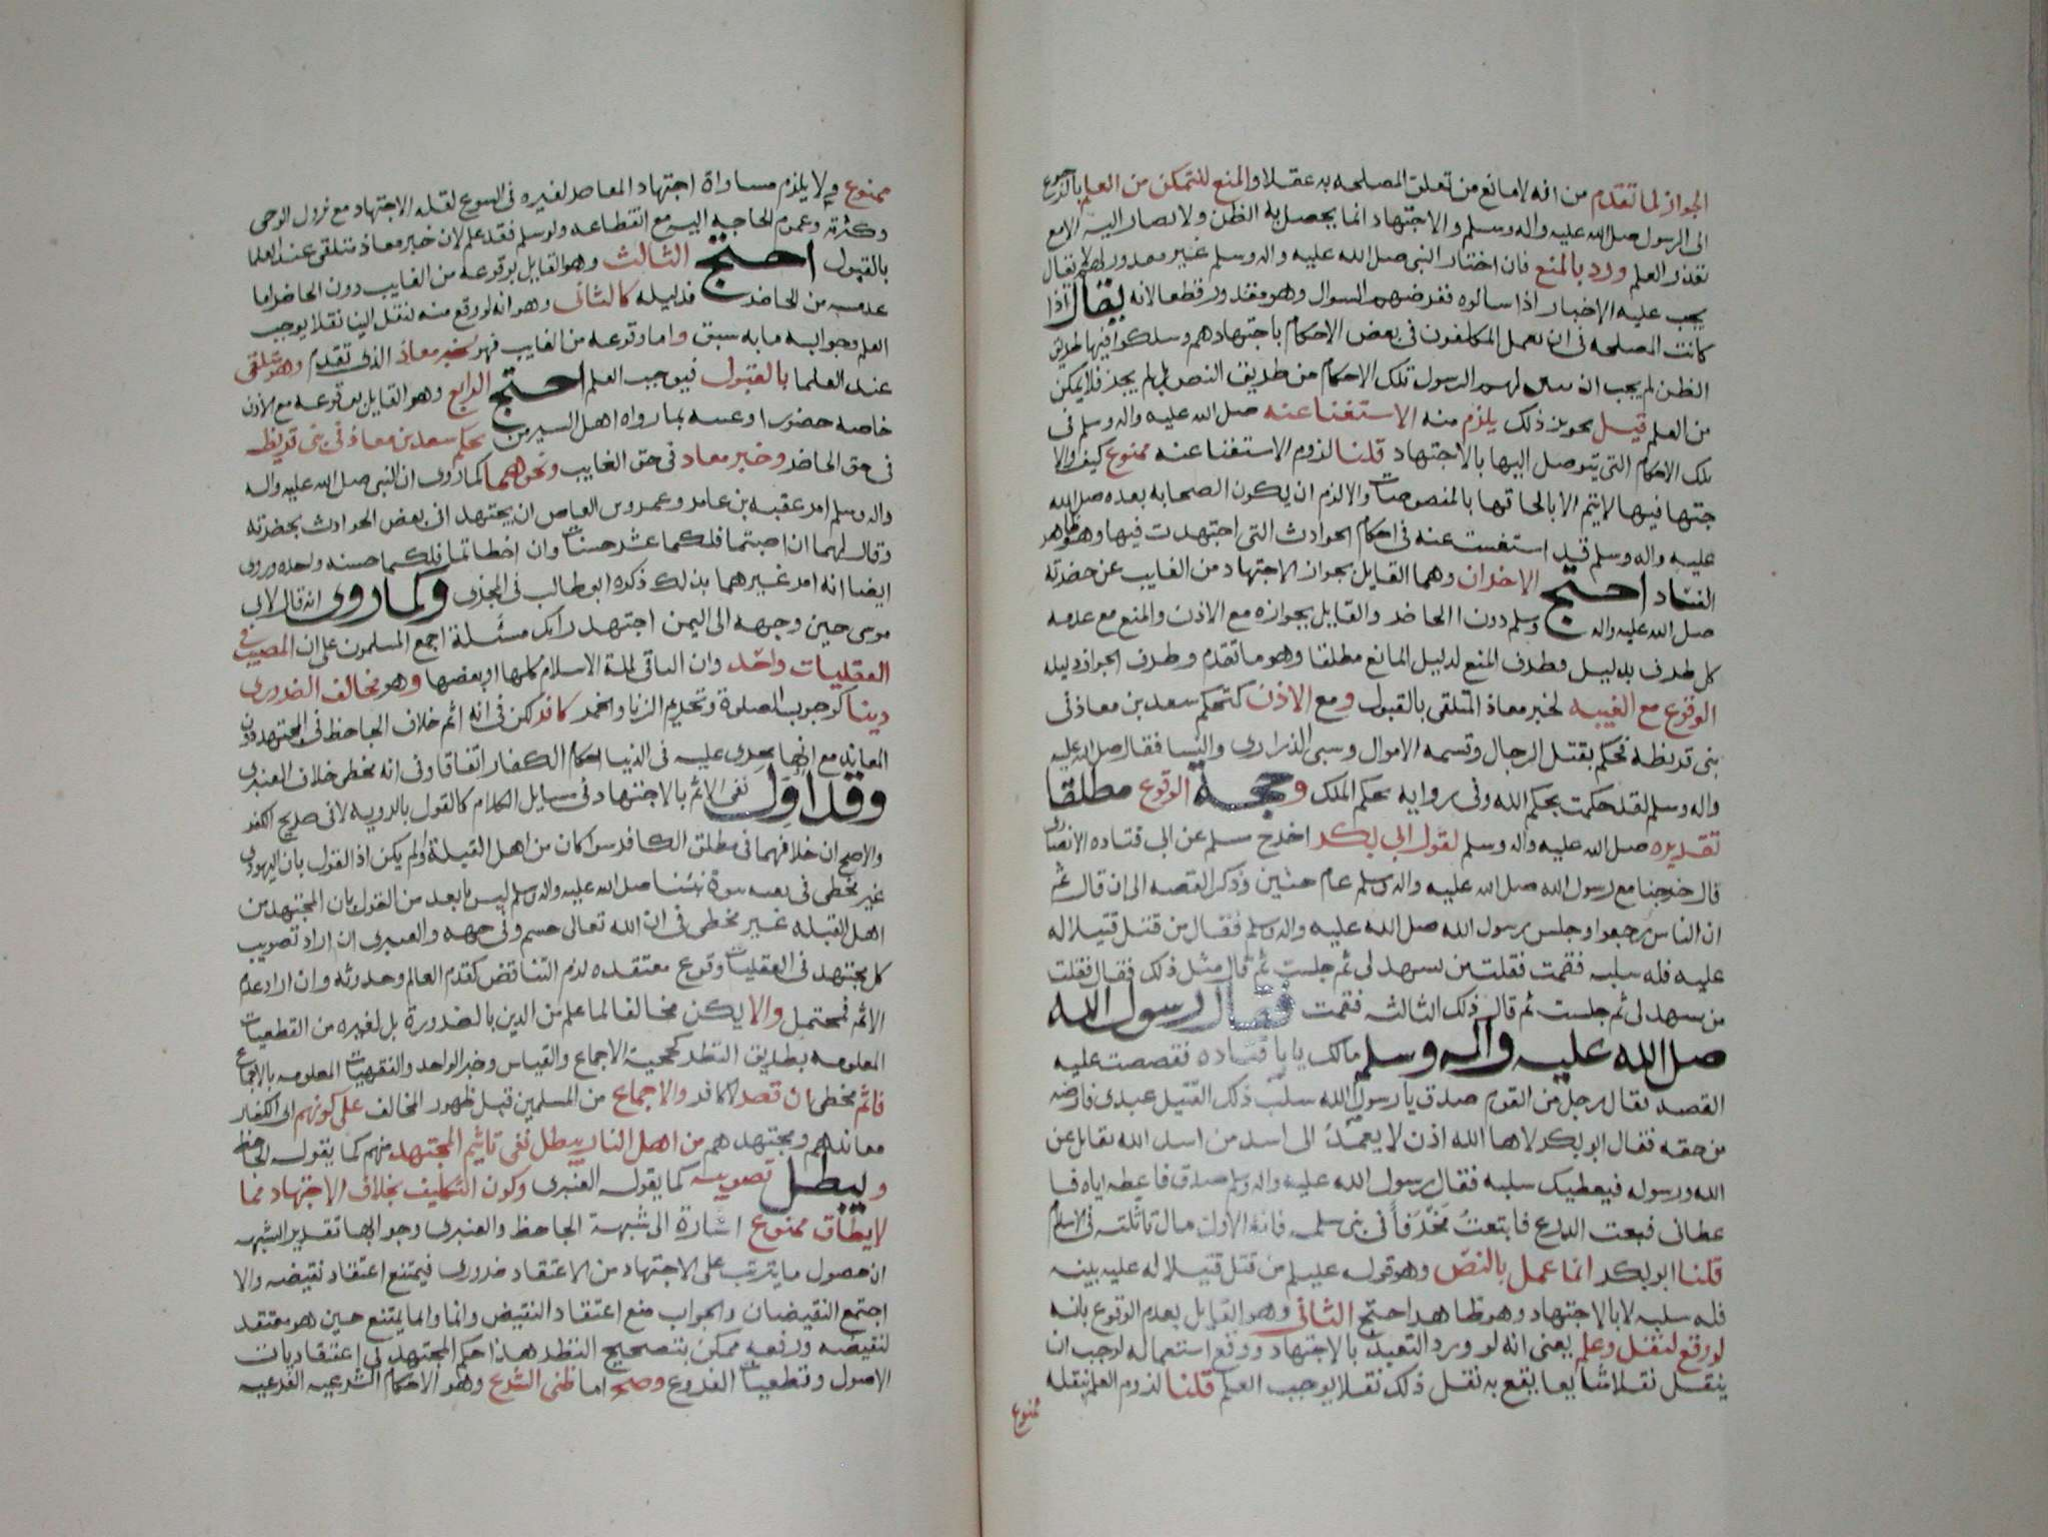 الجواز لما تقدم من انه لا مانع من تعلق المصلحه به عقلا والمنع للتمكن من العلم بالرجوع
الى الرسول صلى الله عليه واله وسلم والاجتهاد انما يحصل به الظن ولا يصار اليه الا مع
تعذر العلم ورد بالمنع فان اختار النبي صلى الله عليه واله وسلم غير مقدور لهم لا يقال
يجب عليه الاخبار اذا سالوه ففرضهم السوال وهو مقدور قطعا لانه يقال اذا
كانت المصلحه في ان يعمل المكلفون في بعض الاحكام باجتهادهم وسلكوا فيها طريق
الظن لم يجب ان يبين لهم الرسول تلك الاحكام من طريق النص بل لم يجز فلا يمكن
من العلم قيل تجويز ذلك يلزم منه الاستغنا عنه صلى الله عليه واله وسلم في
تلك الاحكام التي يتوصل اليها بالاجتهاد قلنا لزوم الاستغنا عنه ممنوع كيف والا
جتهاد فيها لا يتم الا بالحاقها بالمنصوصات والا لزم ان يكون الصحابه بعده صلى الله
عليه واله وسلم قد استغنت عنه في احكام الحوادث التي اجتهدت فيها وهو ظاهر
الفساد احتج الاخران وهما القايل بجواز الاجتهاد من الغايب عن حضرته
صلى الله عليه واله وسلم دون الحاضر والقايل بجوازه مع الاذن والمنع مع عدمه
كل طرف بدليل فطرف المنع لدليل المانع مطلقا وهو ما تقدم وطرف الجواز دليله
الوقوع مع الغيبه لخبر معاذ المتلقى بالقبول ومع الاذن كتحكم سعد بن معاذ في
بني قريظه فحكم بقتل الرجال وقسمه الاموال وسبي الذراري والنسا فقال صلى الله عليه
واله وسلم لقد حكمت بحكم الله وفي روايه بحكم الملك وحجة الوقوع مطلقا
تقريره صلى الله عليه واله وسلم لقول ابي بكر اخرج مسلم عن ابي قتاده الانصاري
قال خرجنا مع رسول الله صلى الله عليه واله وسلم عام حنين وذكر القصه الى ان قال ثم
ان الناس رجعوا وجلس رسول الله صلى الله عليه واله وسلم فقال من قتل قتيلا له
عليه فله سلبه فقمت فقلت من يشهد لي ثم جلست ثم قال مثل ذلك فقال فقلت
من يشهد لي ثم جلست ثم قال ذلك الثالثه فقمت فقال رسول الله
صلى الله عليه واله وسلم مالك يا با قتاده فقصصت عليه
القصه فقال رجل من القوم صدق يا رسول الله سلب ذلك القتيل عندي فارضه
من حقه فقال ابو بكر لاها الله اذن لا يعمد الى اسد من اسد الله يقاتل عن
الله ورسوله فيعطيك سلبه فقال رسول الله عليه واله وسلم صدق فاعطه اياه فا
عطاني فبعت الدرع فابتعت مخرفا في بني سلمه فانه لاول مال تاثلته في الاسلام
قلنا ابو بكر انما عمل بالنص وهو قوله عليلم من قتل قتيلا له عليه بينه
فله سلبه لا بالاجتهاد وهو ظاهر احتج الثاني وهو القايل بعدم الوقوع بانه
لو وقع لنقل وعلم يعني انه لو ورد التعبد بالاجتهاد ووقع استعماله لوجب ان
ينقل نقلا شايعا يقع به نقل ذلك نقلا يوجب العلم قلنا لزوم العلم بنقله
ممنوع
ممنوع ولا يلزم مساواة اجتهاد المعاصر لغيره في الشيوع لقله الاجتهاد مع نزول الوحي
وكثرته وعموم الحاجه اليه مع انقطاعه ولو سلم فقد علم لان خبر معاذ متلقى عند العلما
بالقبول احتج الثالث وهو القايل بوقوعه من الغايب دون الحاضر اما
عدمه من الحاضر فدليله كالثاني وهو انه لو وقع منه لنقل الينا نقلا يوجب
العلم وجوابه ما به سبق واما وقوعه من الغايب فهو لخبر معاذ الذي تقدم وهو متلقى
عند العلما بالقبول فيوجب العلم احتج الرابع وهو القايل بوقوعه مع الاذن
خاصه حضورا وغيبه بما رواه اهل السير من تحكم سعد بن معاذ في بني قريظه
في حق الحاضر وخبر معاذ في حق الغايب ونحوهما كما روي ان النبي صلى الله عليه واله
واله وسلم امر عقبه بن عامر وعمرو بن العاص ان يجتهدا في بعض الحوادث بحضرته
وقال لهما ان اصبتما فلكما عشر حسنات وان اخطاتما فلكما حسنه واحده وروي
ايضا انه امر غيرهما بذلك ذكره ابو طالب في المجزي وكما روي انه قال لابي
موسى حين وجهه الى اليمن اجتهد رايك مسئلة اجمع المسلمون على ان المصيب في
العقليات واحد وان النافي لملة الاسلام كلها او بعضها وهو مخالف الضروري
دينا كوجوب الصلوة وتحريم الزنا والخمر كافر لكن في انه اثم خلاف الجاحظ في المجتهد دون
المعاند مع انها يجري عليه في الدنيا احكام الكفار اتفاقا وفي انه مخطي خلاف العنبري
وقد اول نفي الاثم بالاجتهاد في مسايل الكلام كالقول بالرويه لا في صريح الكفر
والاصح ان خلافهما في مطلق الكافر سوا كان من اهل القبلة ولم يكن اذ القول بان اليهودي
غير مخطي في نفيه نبوة نبينا صلى الله عليه واله وسلم ليس بابعد من القول بان المجتهد من
اهل القبله غير مخطي في ان الله تعالى جسم وفي جهه والعنبري ان اراد تصويب
كل مجتهد في العقليات وقوع معتقده لزم التناقض كقدم العالم وحدوثه وان اراد عدم
الاثم فمحتمل والا يكن مخالفا لما علم من الدين بالضرورة بل لغيره من القطعيات
المعلومه بطريق النظر كحجية الاجماع والقياس وخبر الواحد والفقهيات المعلومه بالاجماع
فاثم مخطي ان قصر لا كافر والاجماع من المسلمين قبل ظهور المخالف على كونهم اي الكفار
معاندهم ومجتهدهم من اهل النار يبطل نفي تاثيم المجتهد منهم كما يقوله الجاحظ
ويبطل تصويبه كما يقوله العنبري وكون التكليف بخلاف الاجتهاد مما
لا يطاق ممنوع اشارة الى شبهة الجاحظ والعنبري وجوابها تقرير الشبهه
ان حصول ما يترتب على الاجتهاد من الاعتقاد ضروري فيمتنع اعتقاد نقيضه والا
اجتمع النقيضان والجواب منع اعتقاد النقيض وانما يمتنع حين هو معتقد
لنقيضه ورفعه ممكن بتصحيح النظر هذا حكم المجتهد في اعتقاديات
الاصول وقطعيات الفروع وصح اما ظني الشرع وهو الاحكام الشرعيه الفرعيه